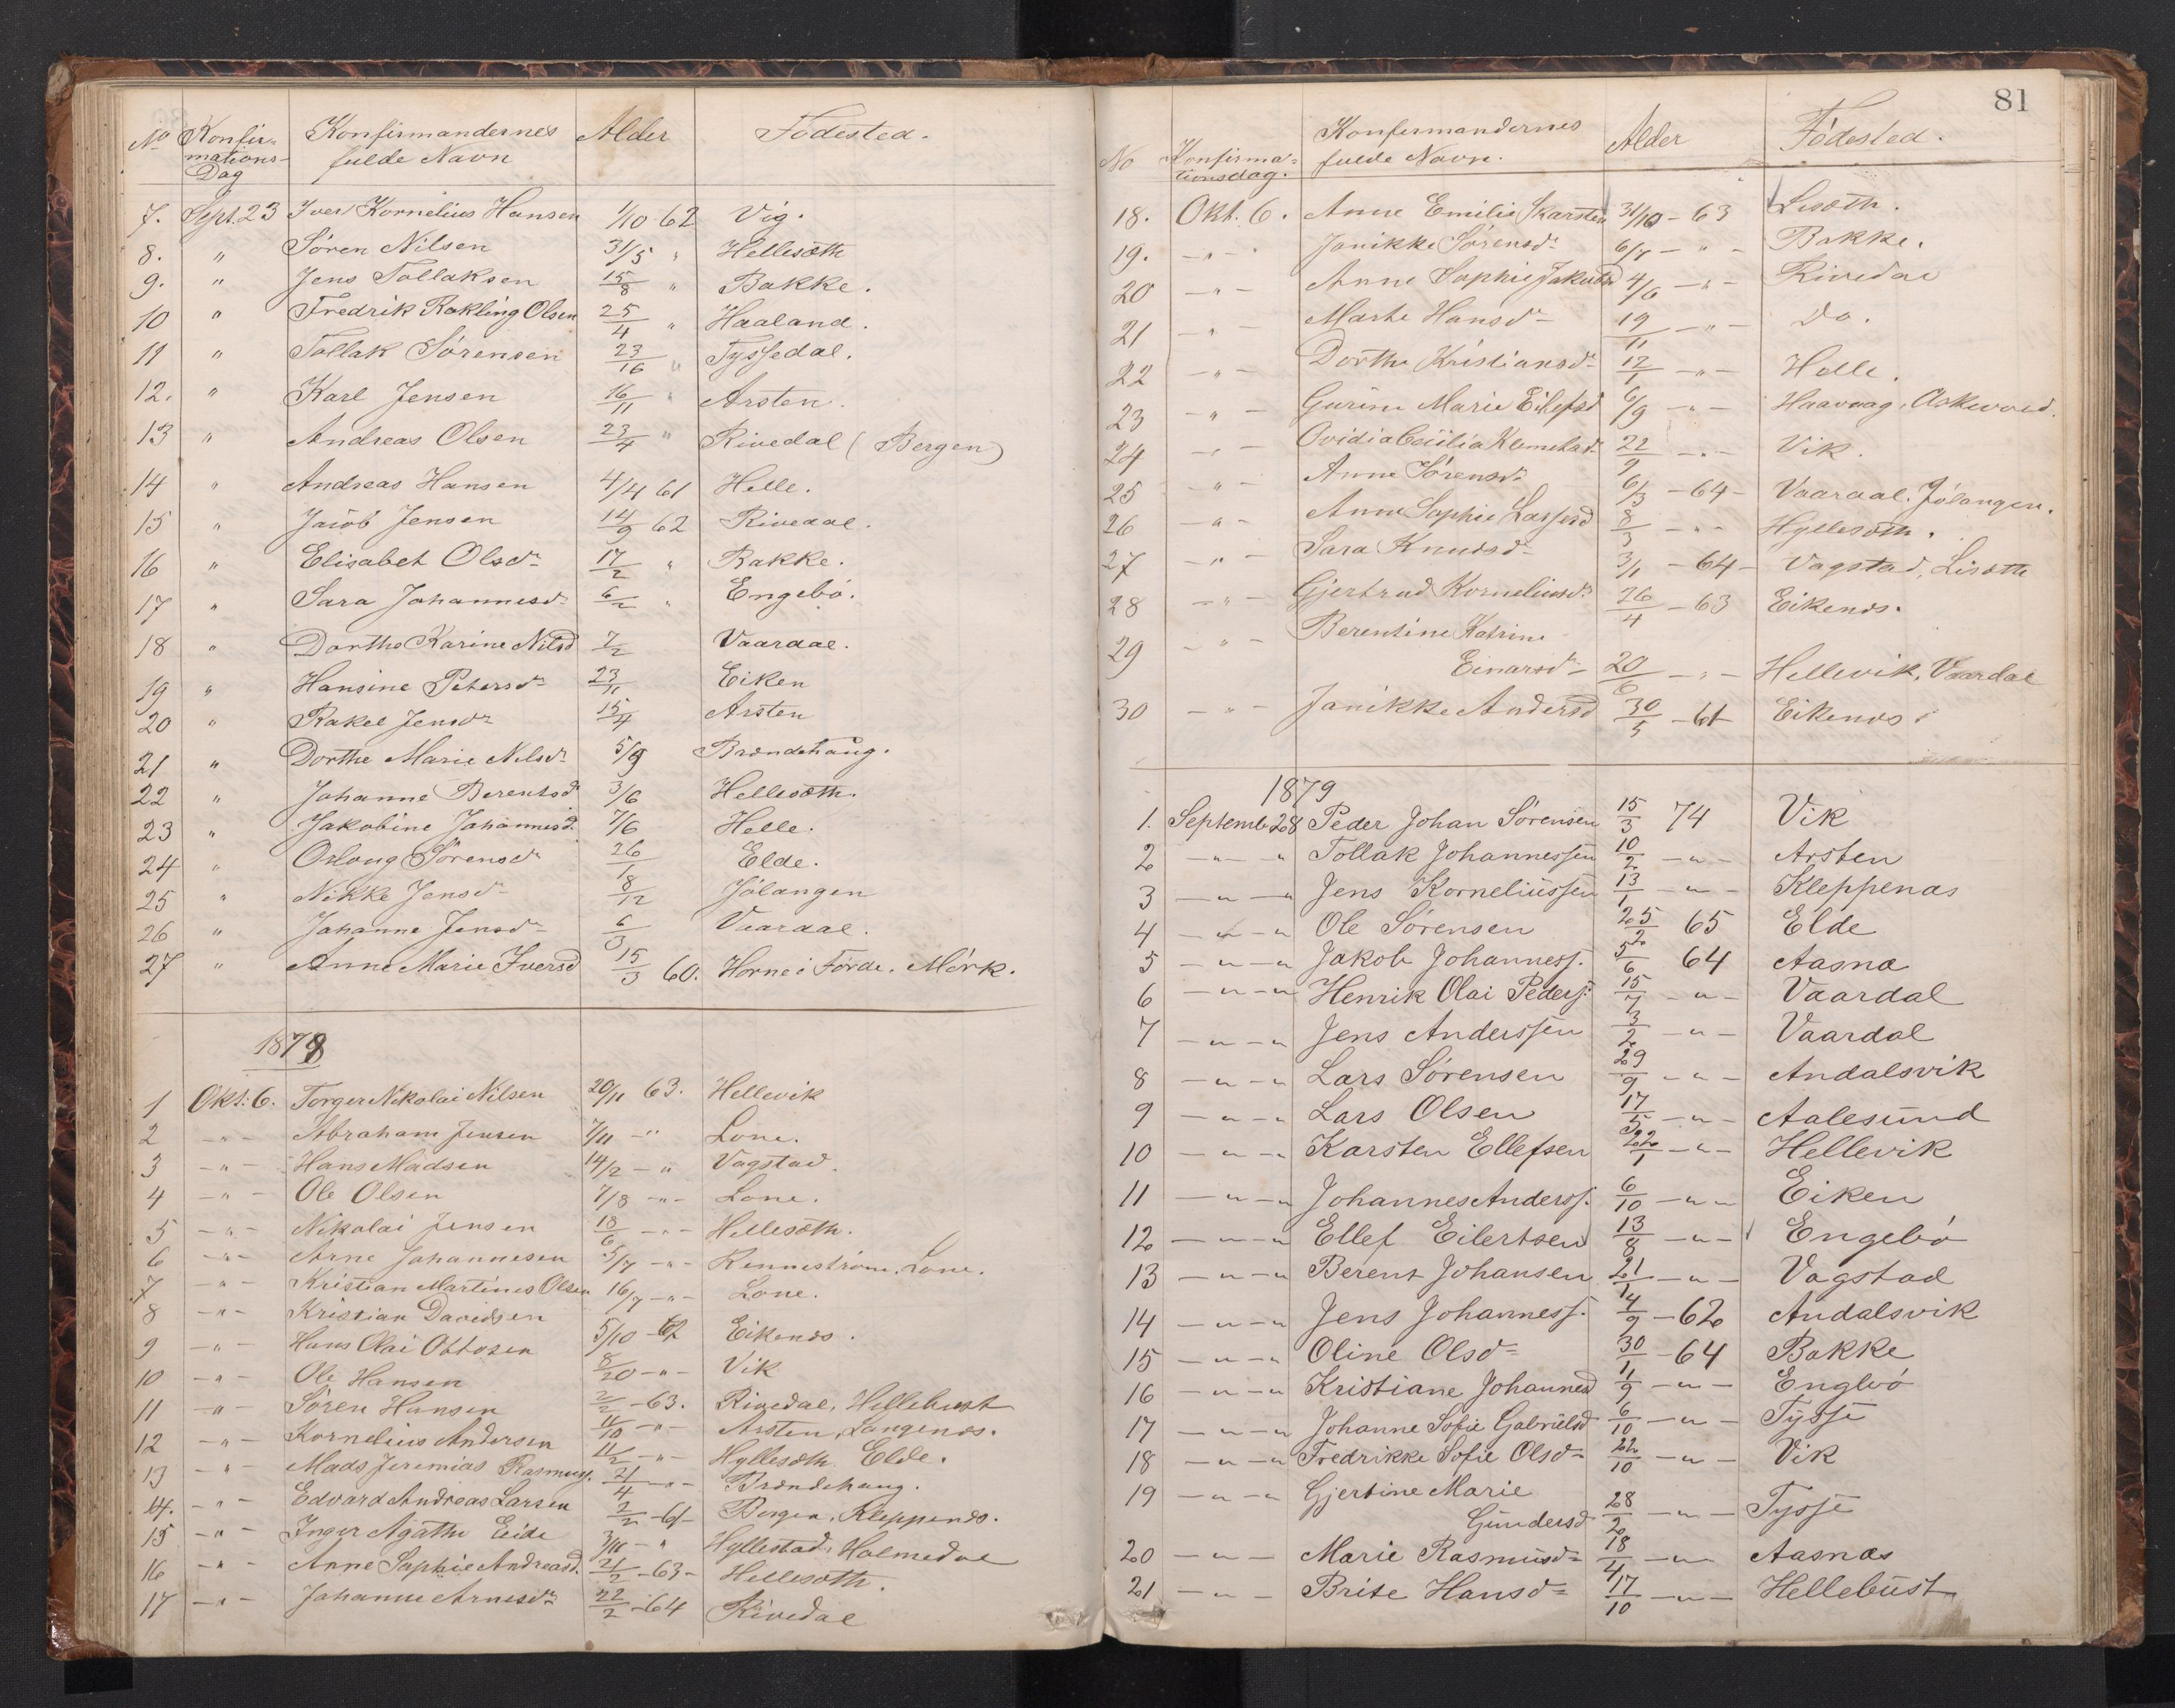 No Konfir- Konfirmandernes Alder Födested.
mations- fulde Navn
Dag
7. Sept. 23 Iver Kornelius Hansen 1/10 62 Vig.
8. " Sören Nilsen 31/5 " Hellesæth
9. " Jens Tollaksen 15/8 " Bakke.
10 " Fredrik Rokling Olsen 25/4 " Haaland.
11 " Tollak Sörensen 23/16 " Tyssedal.
12. " Karl Jensen 16/11 " Arsten.
13 " Andreas Olsen 23/4 " Rivedal (Bergen)
14 " Andreas Hansen 4/4 61 Helle.
15 " Jacob Jensen 14/9 62 Rivedal.
16 " Elisabet Olsdr 17/2 " Bakke.
17 " Sara Johannesdr 6/2 " Engebö.
18 " Dorthe Karine Nilsd 7/2 Vaardal.
19 " Hansine Petersdr 23/11 Eiken
20 " Rakel Jensdr 15/4 Arsten
21 " Dorthe Marie Nilsdr 5/9 Brændehaug.
22 " Johanne Berentsdr 3/6 Hellesæth.
23 " Jakobine Johannesd. 7/6 Helle.
24 " Oslaug Sørensdr 26/1 Elde.
25 " Nikke Jensdr 8/12 Jölangen
26 " Johanne Jensdr 6/3 Vaardal.
27 " Anne Marie Iversd 15/3 60. Horne i Förde. Mörk.
1878
1 Okt: 6. Torger Nikolai Nilsen 20/11 63. Hellevik
2 - " - Abraham Jensen 7/11 - " Lone.
3 - " - Hans Madsen 14/2 - " Vagstad.
4 - " - Ole Olsen 7/8 - " - Lone.
5 - " - Nikolai Jensen 18/6 - " - Hellesæth.
6 - " - Arne Johannesen 5/7 - " - Renneström, Lone.
7 - " - Kristian Martinus Olsen 16/7 - " - Lone.
8 - " - Kristian Davidsen
9 - " - Hans Olai Ottosen 5/10 - 62 Eikenæs.
10 - " - Ole Hansen 8/20 - " - Vik
11 - " - Sören Hansen 2/2 - 63. Rivedal, Hellebust
12 - " - Kornelius Andersen 11/10 - " - Arsten, Langenæs.
13 - " - Mads Jeremias Rasmuss. 11/2 - " - Hyllesæth Elde.
14. - " - Edvard Andreas Larsen 21/4 - " - Brændehaug.
15 - " - Inger Agathe Eide 2/2 - 61 - Bergen, Kleppenæs.
16 - " - Anne Sophie Andreasd. 3/11 - " Hyllestad, Holmedal
17 - " - Johanne Arnesdr 21/2 - 63 - Hellesæth.
22/2 - 64 Rivedal
81
No Konfirma- Konfirmandernes Alder Födested.
tionsdag. fulde Navn.
18. Okt. 6. Anne Emilie Skarsten 31/10 - 63 Lisæth.
19. - " - Janikke Sörensdr 6/7 - " - Bakke.
20 - " - Anne Sophie Jakobsd 4/6 - " - Rivedal
21 - " - Marte Hansdr 19/11 - " - Do.
22 - " - Dorthe Kristiansdr 12/1 - " - Helle.
23 - " - Gurine Marie Eilefsd 6/9 - " - Haavaag, Askevold.
24 - " - Ovidia Cecilia Klemetsdr 22/9 - " - Vik.
25 - " - Anne Sörensdr 6/3 - 64 - Vaardal. Jölangen.
26 - " - Anne Sophie Larsesd 8/3 - " - Hyllesæth.
27 - " - Sara Knudsdr 3/1 - 64 - Vagstad, Lisæth
28 - " - Gjertrud Korneliusdr 26/4 - 63 Eikenæs.
29 - " - Berentine Katrine
Einarsdr 20/6 - " - Hellevik, Vaardal
30 - " - Janikke Andersd 30/5 - 61 Eikenæs.
1879
1. Septemb. 28 Peder Johan Sörensen 15/3 74 Vik
2 - " - " Tollak Johannessen 10/2 - " - Arsten
3 - " - " Jens Korneliussen 13/1 - " - Kleppenæs
4 - " - " Ole Sörensen 25/2 65 Elde
5 - " - " Jakob Johanness. 5/6 64 Aasnæ
6 - " - " Henrik Olai Peders: 15/7 - " - Vaardal
7 - " - " Jens Anderssen 3/2 - " - Vaardal
8 - " - " Lars Sörensen 29/9 - " - Andalsvik
9 - " - " Lars Olsen 17/5 - " - Aalesund
10 - " - " Karsten Ellefsen 22/1 - " - Hellevik
11 - " - " Johannes Anderss. 6/10 - " - Eiken
12 - " - " Ellef Eilertsen 13/8 - " - Engebö
13 - " - " Berent Johansen 21/1 - " - Vagstad
14 - " - " Jens Johanness. 14/9 - 62 Andalsvik
15 - " - " Oline Olsd= 30/1 - 64 Bakke
16 - " - " Kristiane Johannesd 1/9 - " - Englbö
17 - " - " Johanne Sofie Gabrielsd 6/10 - " - Tysse
18 - " - " Fredrikke Sofie Olsd= 22/10 - " - Vik
19 - " - " Gjertine Marie
Gundersd 28/2 - " - Tysse
20 - " - Marie Rasmusd= 18/4 - " - Aasnæs
21 - " - Brite Hansd= 17/10 - " - Hellebust